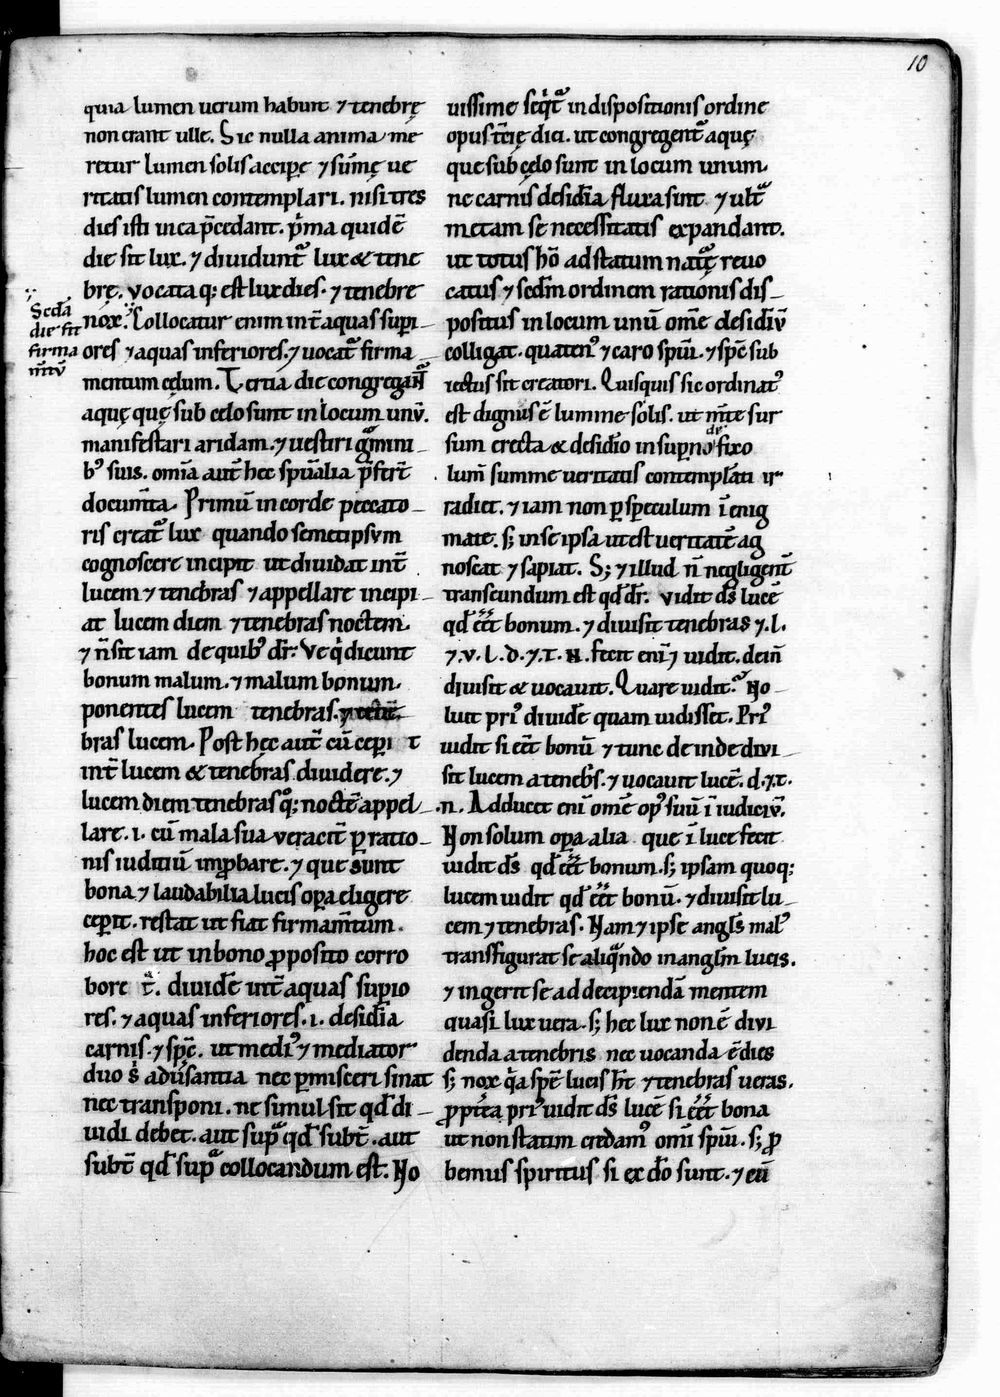 10
quia lumen uerum habunt ⁊ tenebrę
non erant ulle. Sic nulla anima me
retur lumen solis accipe ⁊ sūmę ue
ritatis lumen contemplari. nisi tres
dies isti in ea p̄cedant. p̓ma quidē
die sit lux. ⁊ diuidunt᷑ lux & tene
brę. vocata q; est lux dies. ⁊ tenebre
nox. Collocatur enim int̄ aquas supi
Scda᷑
die fit
firma
m̄tū
ores ⁊ aquas inferiores. ⁊ uocat᷑ firma
mentum cęlum. Tertia die congregan᷑t
aquę quę sub cęlo sunt in locum unū.
manifestari aridam. ⁊ uestiri g̃mini
bꝰ suis. omīa aut̄ hec spūalia p̄fert̄
docum̄ta. Primū in corde peccato
ris creat᷑ lux quando semetipsum
cognoscere incipit ut diuidat int̄
lucem ⁊ tenebras ⁊ appellare incipi
at lucem diem ⁊ tenebras noctem.
⁊ n̄ sit iam de quibꝰ dr̄. Ve q̓ dicunt
bonum malum. ⁊ malum bonum.
ponentes lucem tenebras. ⁊ tene
bras lucem. Post hęc aut̄ cū cepi t
int̄ lucem & tenebras diuidere. ⁊
lucem diem tenebras q̨; noctē appel
lare. i. cū mala sua veracit̄ ꝑ ratio
nis iuditiū imꝓbare. ⁊ que sunt
bona ⁊ laudabilia lucis oꝑa eligere
ceꝑit. restat ut fiat firmam̄tum.
hoc est ut in bono ꝓposito corro
bore t᷑. diuidē int̄ aquas supio
res. ⁊ aquas inferiores. i. desidīa
carnis. ⁊ spc̄. ut mediꝰ ⁊ mediator
duo s̓ adūsantia nec ꝑmisceri sinat
nec transponi. ne simul sit qđ di
uidi debet. aut sup᷑ qđ subt̄. aut
subt̄ qđ sup᷑ collocandum est. No
uissime seq̓t᷑ in dispositionis ordine
opus t̄cię diei. ut congregent᷑ aquę
que sub cęlo sunt in locum unum.
ne carnis desidīa fluxa sint ⁊ ult᷑
metam se necessitatis expandant.
ut totus hō ad statum nat᷑ę reuo
catus ⁊ scđm ordinem rationis dis
positus in locum unū om̄e desidīū
colligat. quatenꝰ ⁊ caro spūi. ⁊ spc̄ sub
iectus sit creatori. Quisquis sic ordinatꝰ
est dignus ē lumine solis. ut m̄te sur
sum erecta & desidīo in suꝑno de fixo
lum̄ summe ueritatis contemplāti ir
radiet. ⁊ iam non ꝑ speculum ī enig
mate. s; in se ipsa ut est ueritatē ag
noscat ⁊ sapiat. S; ⁊ illud n̄ negligent̄
transeundum est qđ dr̄. vidit ds̄ lucē
qđ eēt bonum. ⁊ diuisit tenebras ⁊. l.
⁊. v. l. d. ⁊. t. N. fecit enī ⁊ uidit. dein̄
diuisit & uocauit. Quare uidit? No
luit priꝰ diuidē quam uidisset. Priꝰ
uidit si eēt bonū ⁊ tunc deinde diui
sit lucem a tenebs̄. ⁊ uocauit lucē. d. ⁊. t.
n. Adducet enī om̄e opꝰ suū ī iudiciū.
Non solum oꝑa alia que ī luce fecit
uidit ds̄ qđ eēt bonum. s; ipsam quoq;
lucem uidit qđ eēt bonū. ⁊ diuisit lu
cem ⁊ tenebras. Nam ⁊ ipse angls̄ malꝰ
transfigurat se aliq̃ndo in angl̄m lucis.
⁊ ingerit se ad decipiendā mentem
quasi lux uera. s; hec lux non ē diui
denda a tenebris nec uocanda ē dies
s; nox q̓a spē lucis ht̄ ⁊ tenebras ueras.
ꝓpt̄ea priꝰ uidit ds̄ lucē si eēt bona
ut non statim credamꝰ omī spūi. s; ꝓ
bemus spiritus si ex do sunt. ⁊ cū